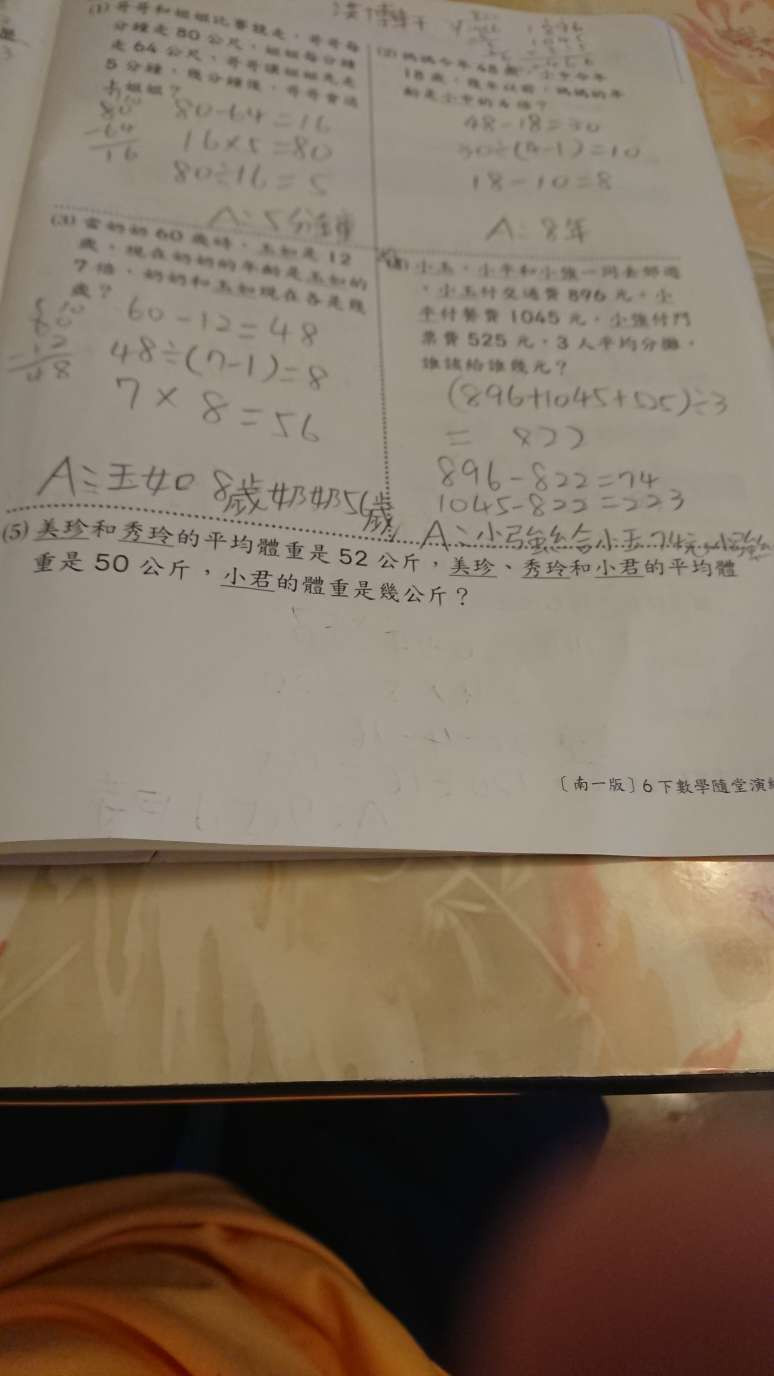 (1) 哥哥和姐姐比賽競走，哥哥每
分鐘走 80 公尺，姐姐每分鐘
走 64 公尺，哥哥讓姐姐先走
5 分鐘，幾分鐘後，哥哥會追
上姐姐？
80
-64
16
80-64=16
16×5=80
80÷16=5
A：5分鐘
(2) 媽媽今年 48 歲，小中今年
18 歲，幾年以前，媽媽的年
齡是小中的 4 倍？
48-18=30
30÷(4-1)=10
18-10=8
A：8年
(3) 當奶奶 60 歲時，玉如是 12
歲，現在奶奶的年齡是玉如的
7 倍，奶奶和玉如現在各是幾
歲？
5 10
60
-12
48
60-12=48
48÷(7-1)=8
7×8=56
A：玉如8歲奶奶56歲
小玉、小平和小強一同去郊遊
，小玉付交通費 896 元，小
平付餐費 1045 元，小強付門
票費 525 元，3 人平均分攤，
誰該給誰幾元？
(896+1045+525)÷3
= 822
896-822=74
1045-822=223
A：小強給小玉74元
(5) 美珍和秀玲的平均體重是 52 公斤，美珍、秀玲和小君的平均體
重是 50 公斤，小君的體重是幾公斤？
〔南一版〕6下數學隨堂演